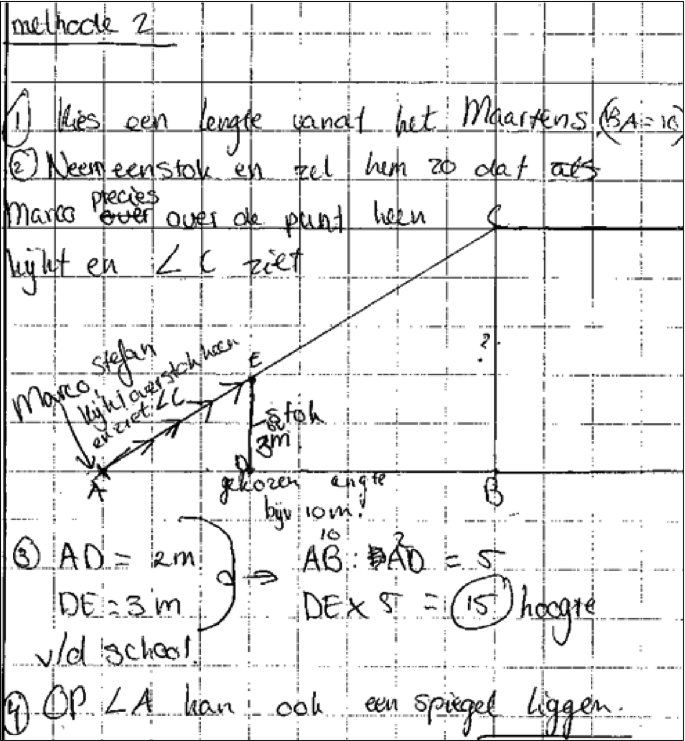 methode 2
① Kies een lengte vanaf het Maartens (BA=10)
② Neem een stok en zet hem zo dat als
Marco precies over over de punt heen
kijkt en ∠C ziet
C
?
E
Marco, Stefan
kijkt over stok heen
en ziet ∠C
stok
3m
D
A
gekozen lengte
B
bijv 10m.
③ AD = 2m
DE = 3m
⇒ AB : AD = 5
10 2
DE x 5 = 15 hoogte
v/d school.
④ Op ∠A kan ook een spiegel liggen.